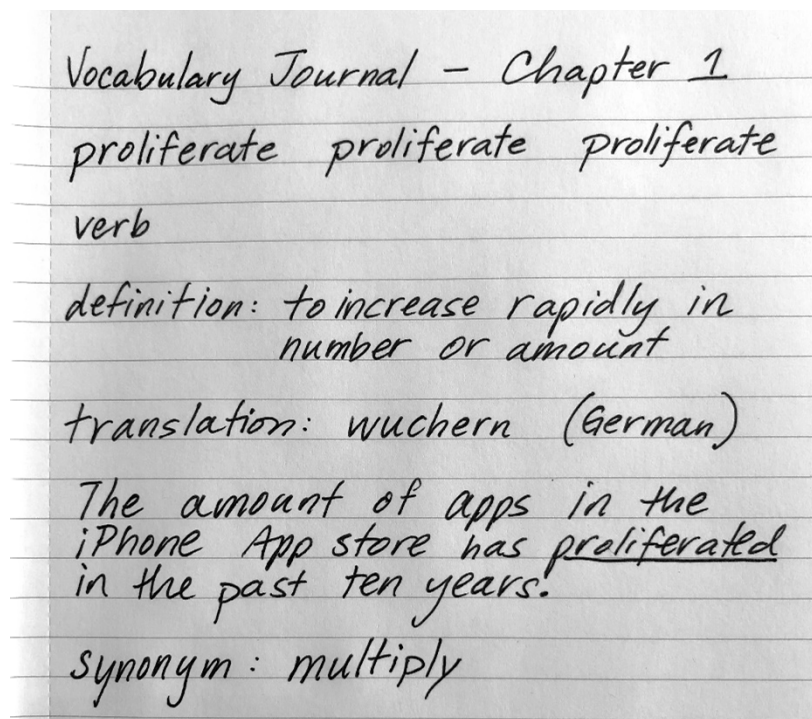 Vocabulary Journal - Chapter 1
proliferate proliferate proliferate
verb
definition: to increase rapidly in
number or amount
translation: wuchern (German)
The amount of apps in the
iPhone App store has proliferated
in the past ten years.
synonym: multiply